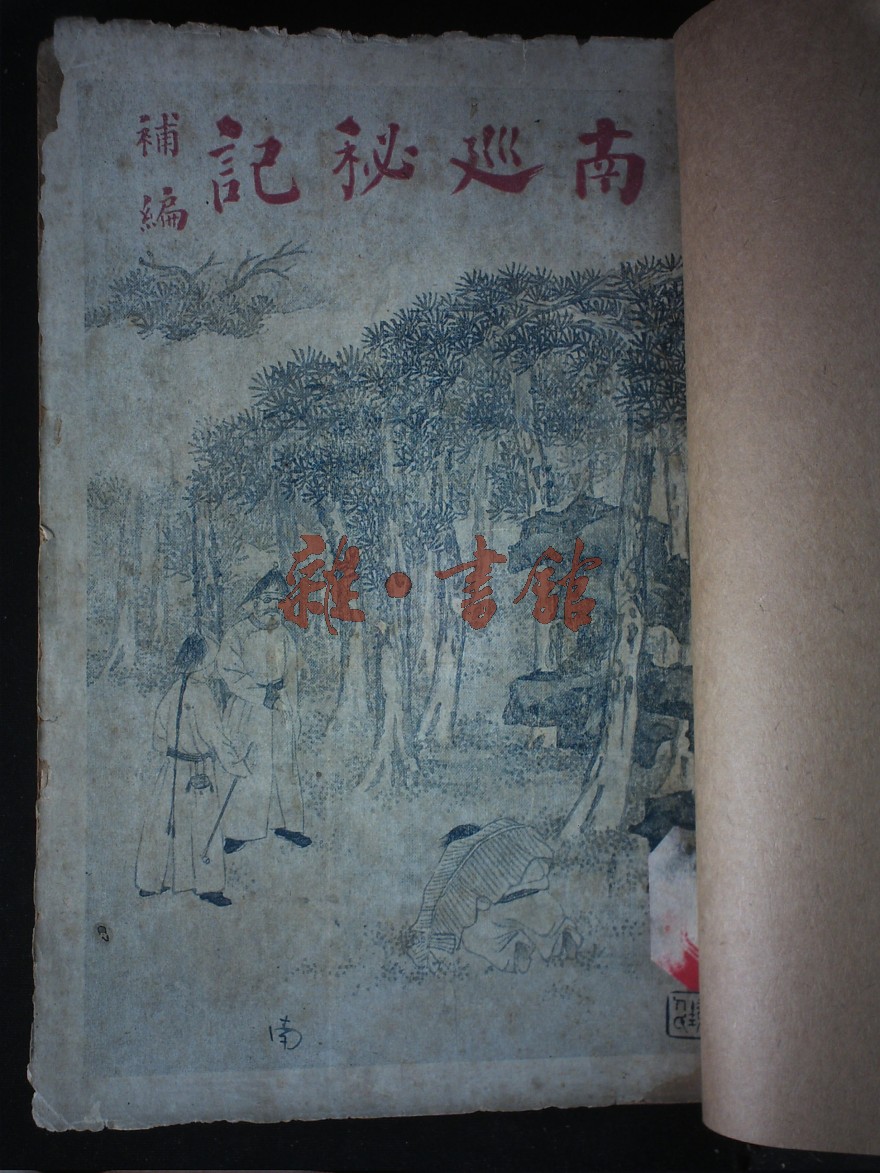 南巡秘記
補編
雜·書館
南